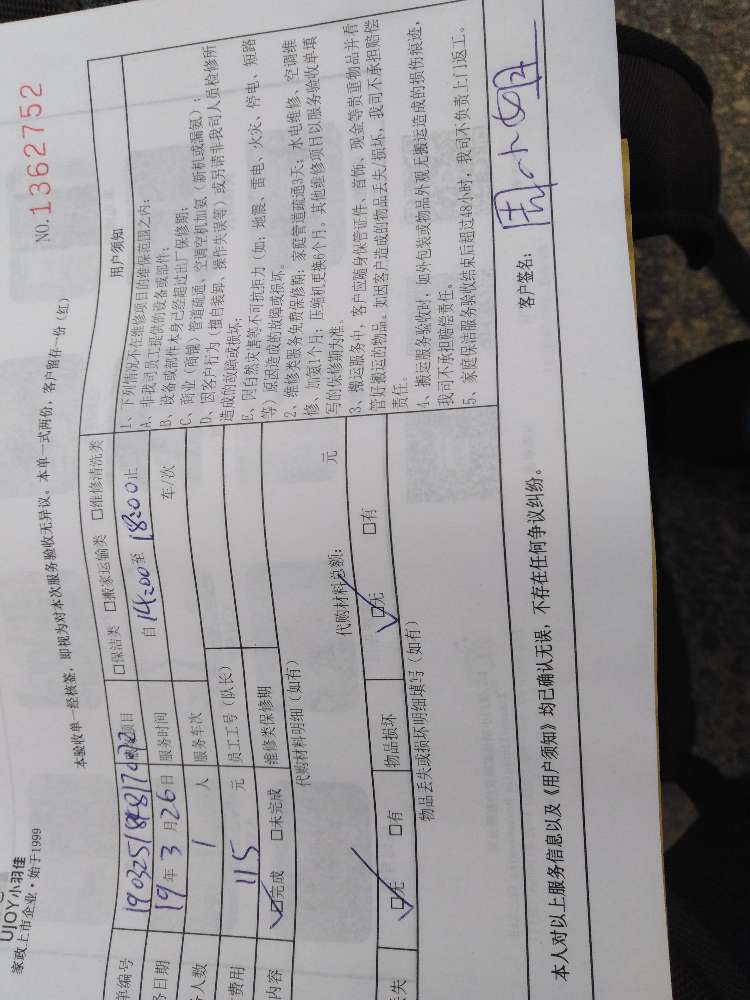 UJOY小羽佳
家政上市企业·始于1999
NO.1362752
本验收单一经核签，即视为对本次服务验收无异议。本单一式两份，客户留存一份（红）
单编号 项目 □保洁类 □搬家运输类 □维修清洗类
日期 19年3月26日 服务时间 自14:00至18:00止
人数 1人 服务车次 车/次
费用 115元 员工工号（队长）
内容 ☑完成 □未完成 维修类保修期
代购材料明细（如有）
代购材料总额： 元
丢失 ☑无 □有 物品损坏 ☑无 □有
物品丢失或损坏明细填写（如有）
用户须知
1、下列情况不在维修项目的维保范围之内：
A、非我司员工提供的设备或部件；
B、设备或部件本身已经超过出厂保修期；
C、商业（商铺）管道疏通、空调空机加氨（新机或漏氨）；
D、因客户行为（擅自装卸、操作失误等）或另请非我司人员检修所
造成的故障或损坏；
E、因自然灾害等不可抗拒力（如：地震、雷电、火灾、停电、短路
等）原因造成的故障或损坏。
2、维修类服务免费保修期：家庭管道疏通3天；水电维修、空调维
修、加氨1个月；压缩机更换6个月。其他维修项目以服务验收单填
写的保修期为准。
3、搬运服务中，客户应随身保管证件、首饰、现金等贵重物品并看
管好搬运的物品。如因客户造成的物品丢失/损坏，我司不承担赔偿
责任。
4、搬运服务验收时，如外包装或物品外观无搬运造成的损伤痕迹，
我司不承担赔偿责任。
5、家庭保洁服务验收结束后超过48小时，我司不负责上门返工。
本人对以上服务信息以及《用户须知》均已确认无误，不存在任何争议纠纷。
客户签名：